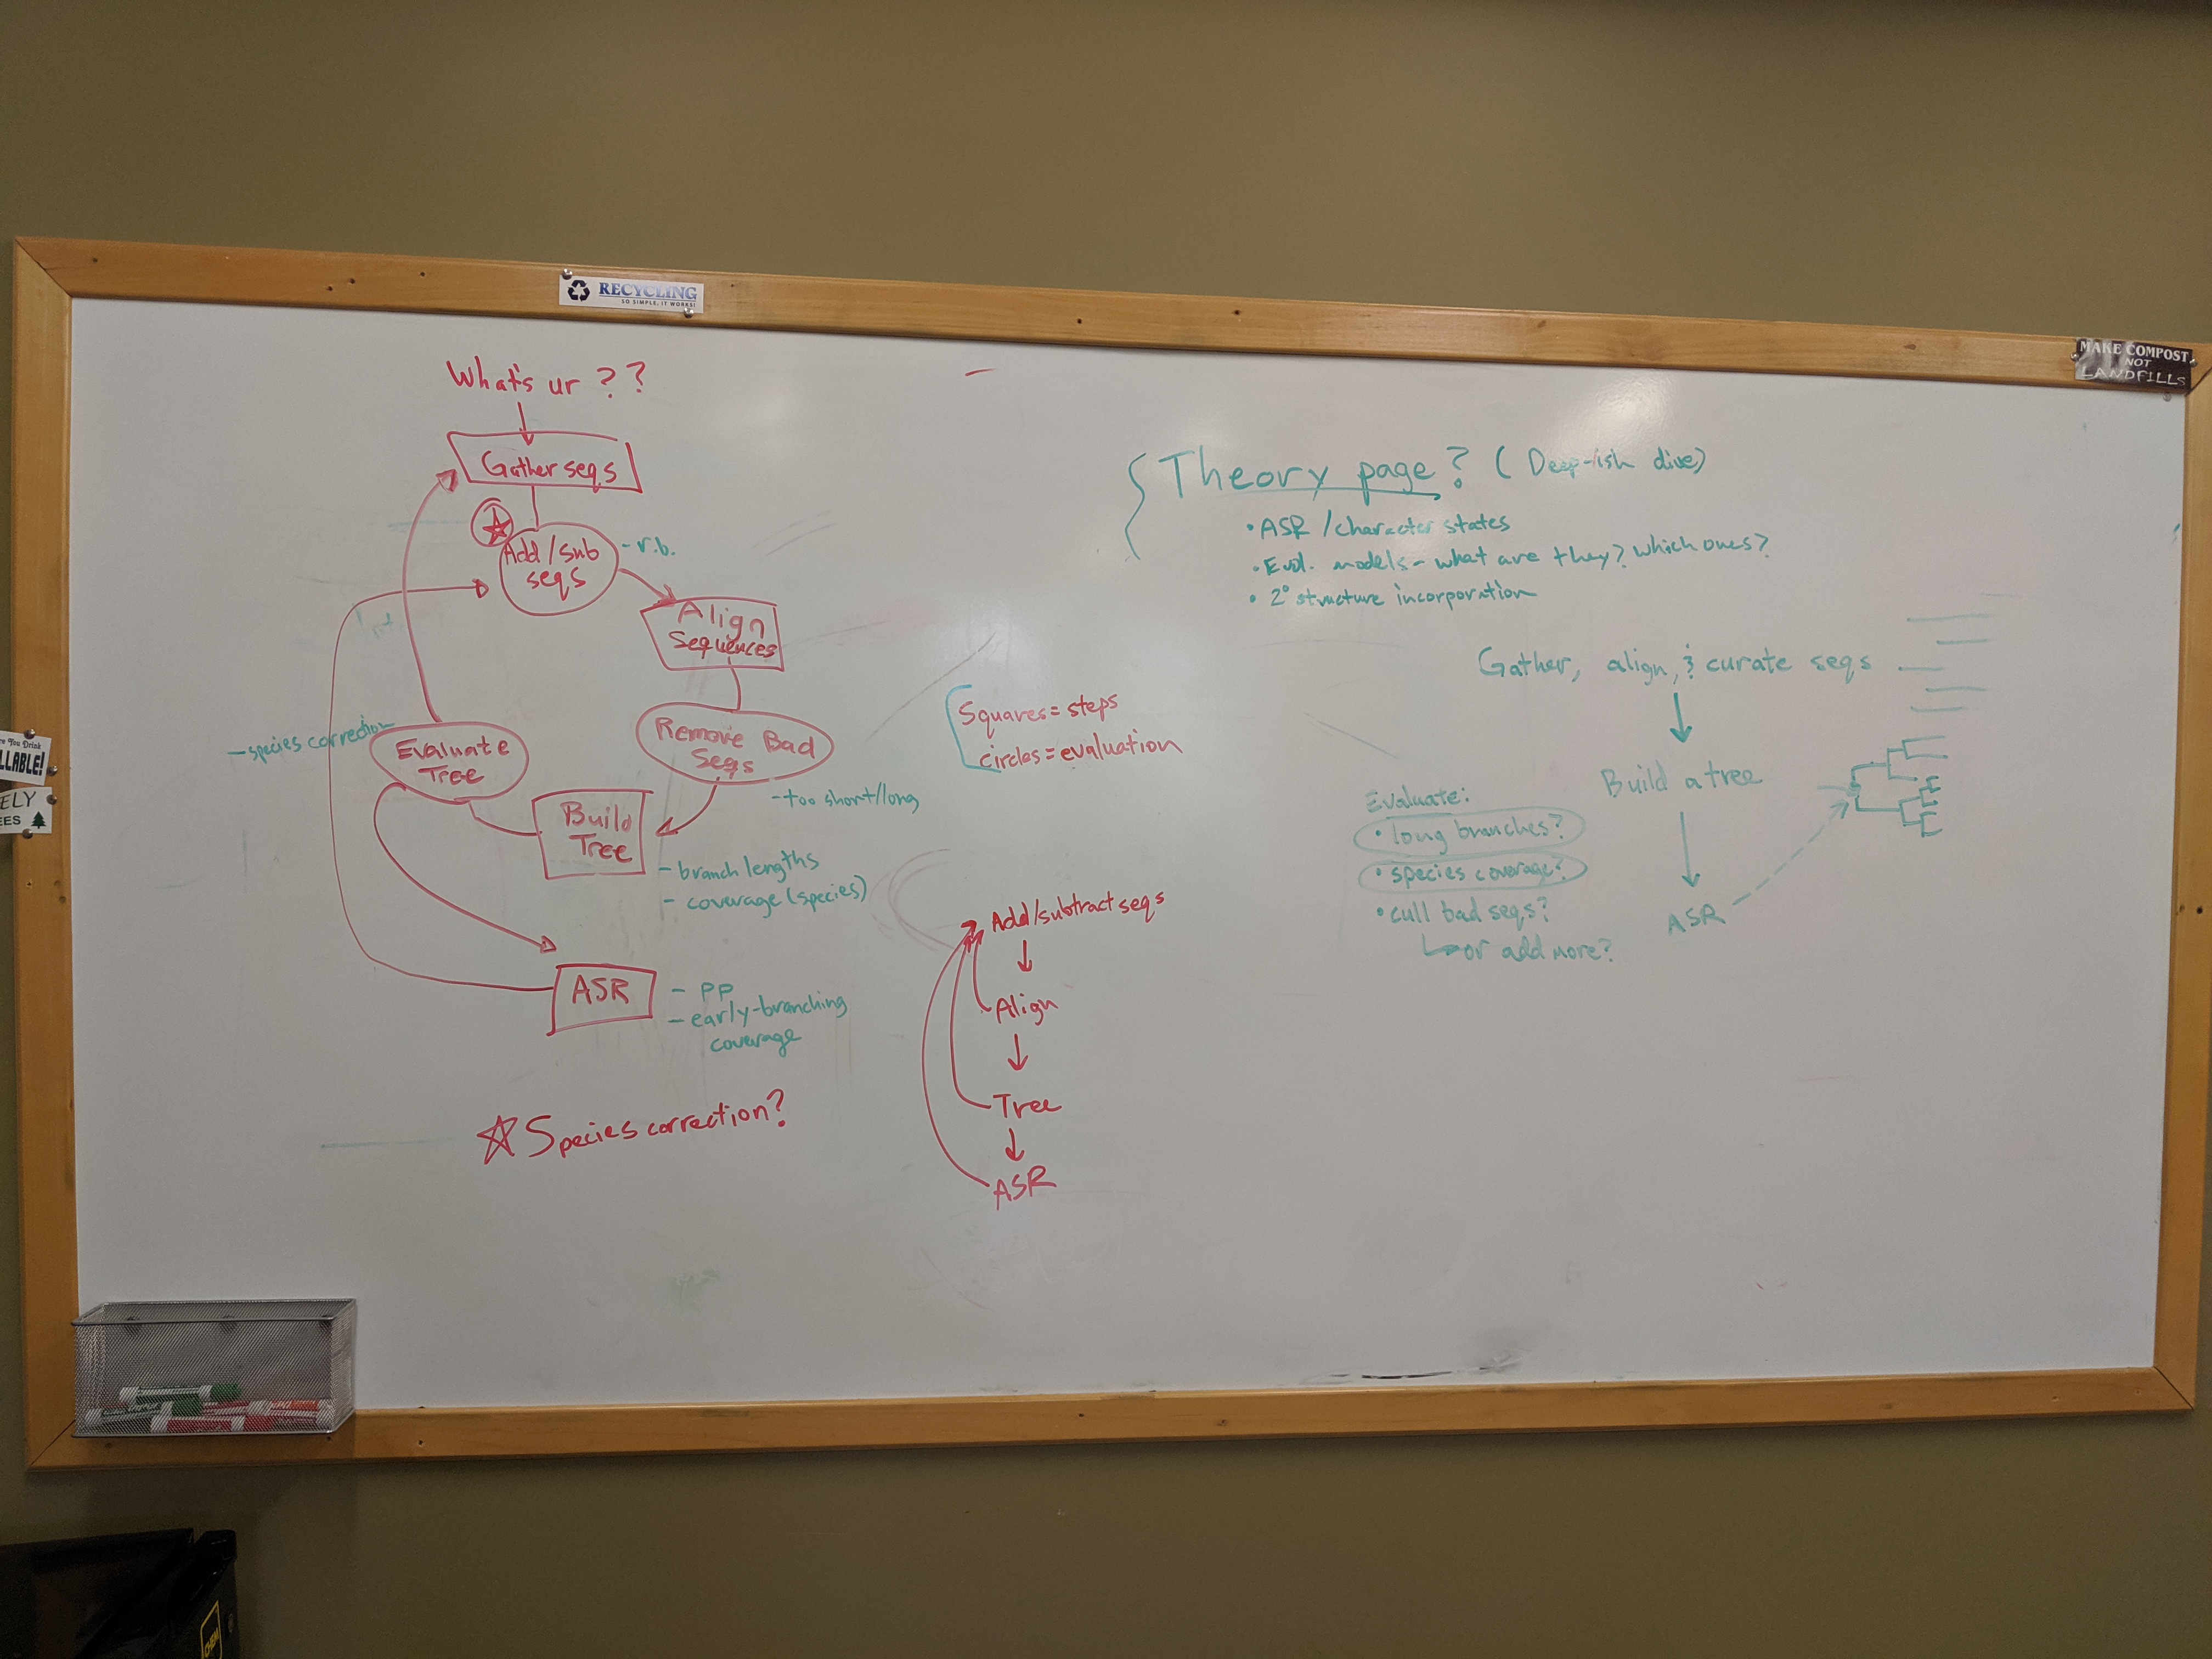 RECYCLING
SO SIMPLE, IT WORKS!
MAKE COMPOST
NOT
LANDFILLS
What's ur ??
Gather seqs
Add/sub
seqs
- r.b.
Align
Sequences
Remove Bad
Seqs
- too short/long
Build
Tree
- branch lengths
- coverage (species)
Evaluate
Tree
- species correction
ASR
- PP
- early-branching
coverage
Species correction?
Squares = steps
circles = evaluation
Add/subtract seqs
Align
Tree
ASR
Theory page? (Deep-ish dive)
• ASR / character states
• Evol. models - what are they? which ones?
• 2° structure incorporation
Gather, align, & curate seqs
Build a tree
ASR
Evaluate:
• long branches?
• species coverage?
• cull bad seqs?
or add more?
You Drink
LLABLE!
ELY
EES